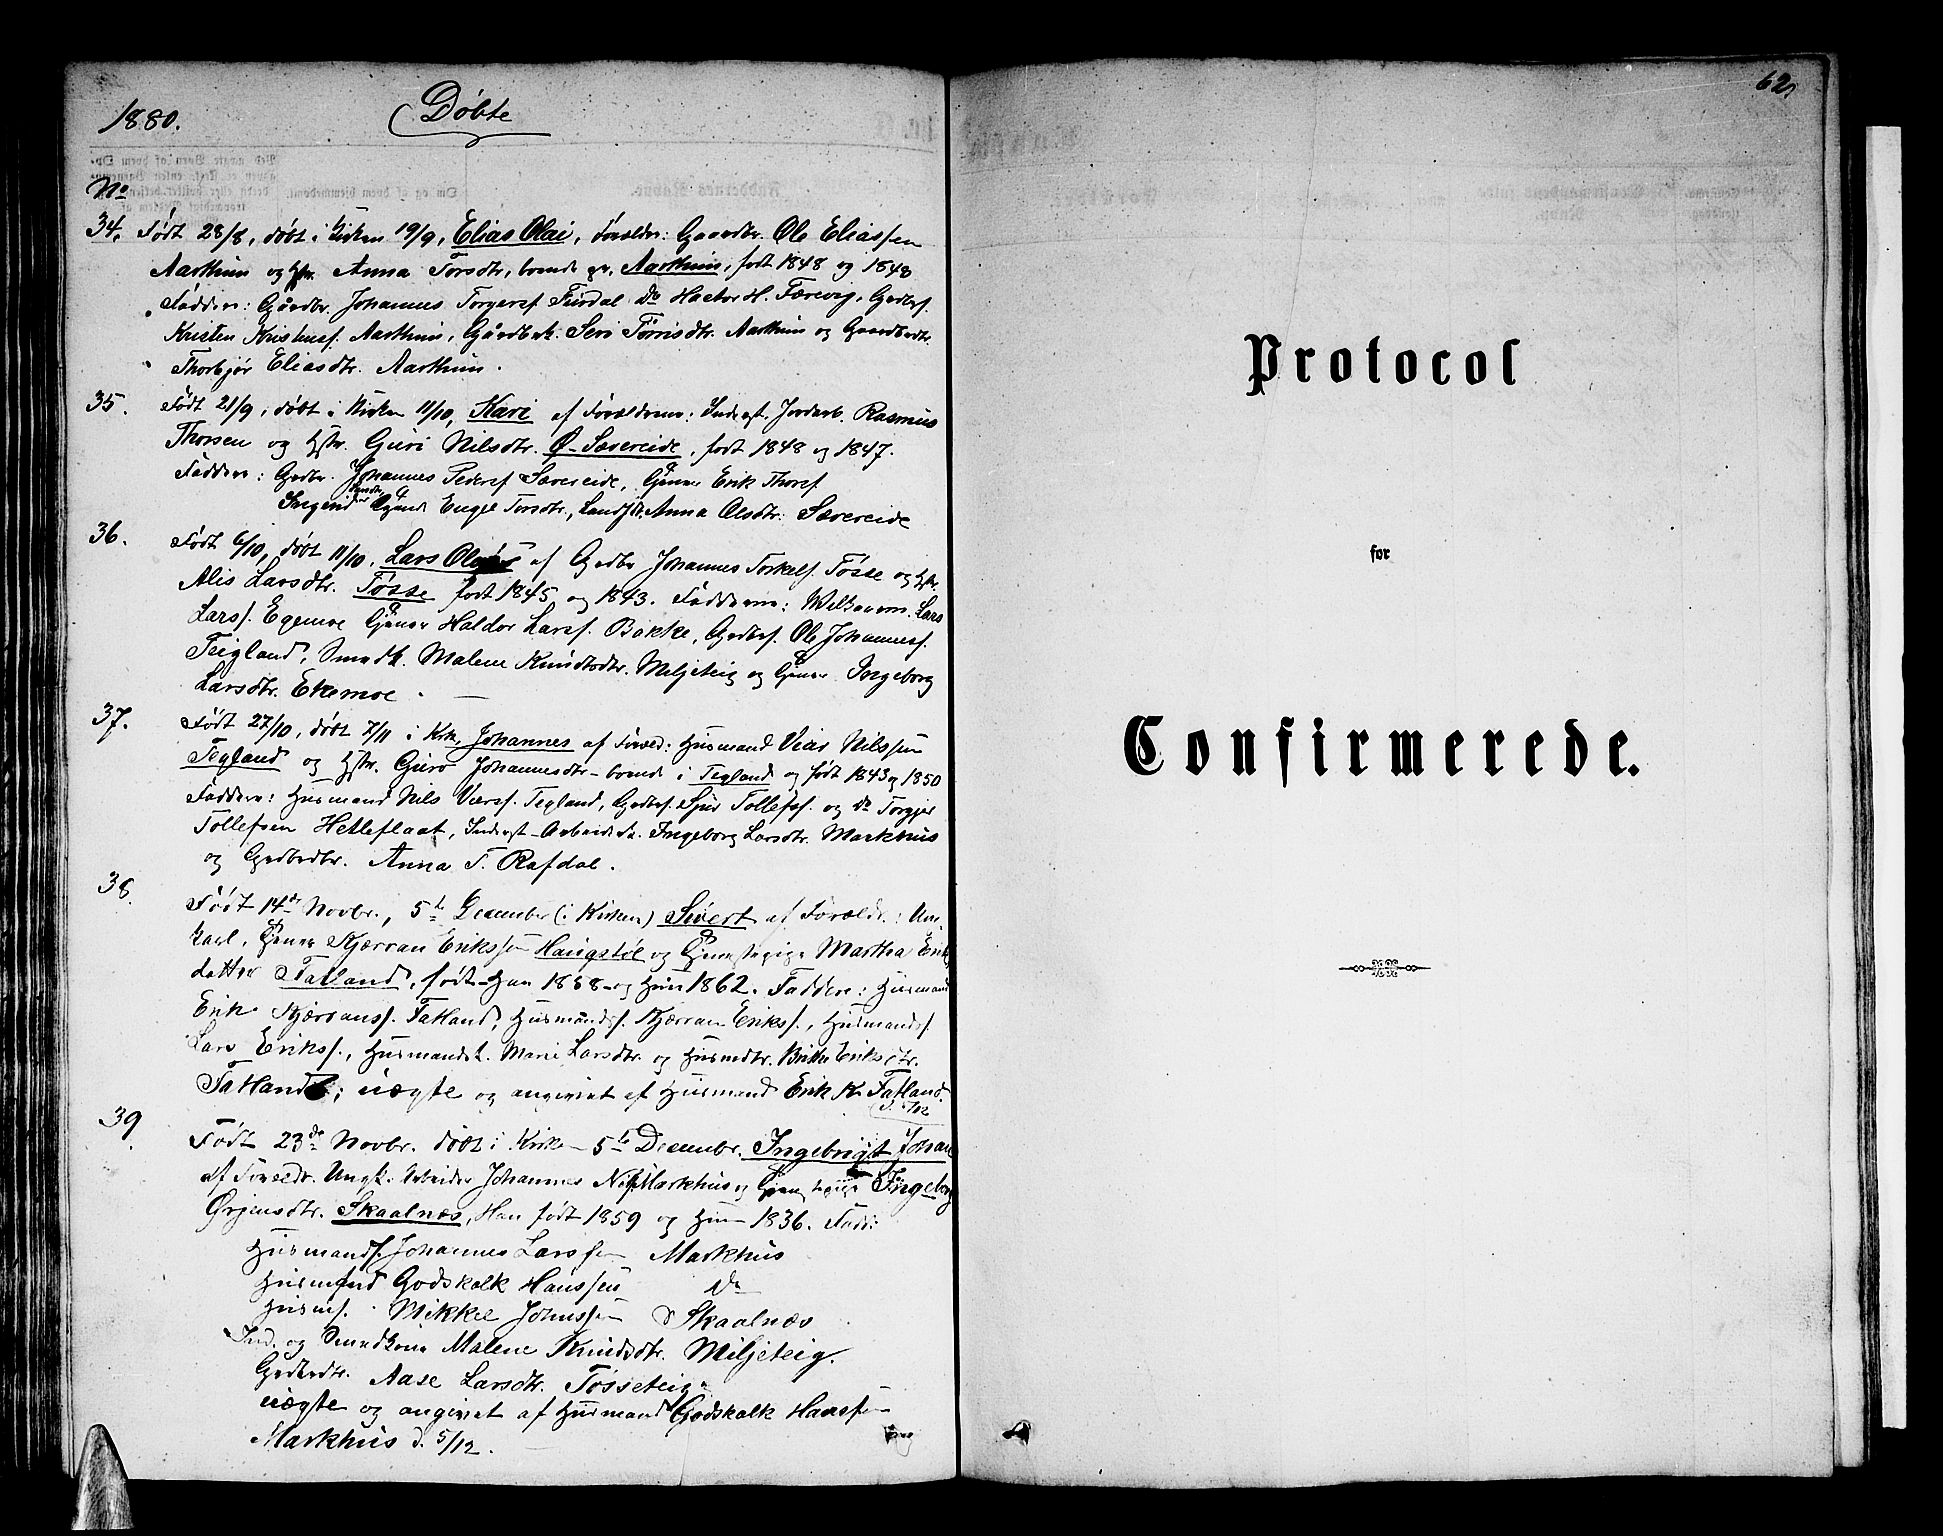 1880. Døbte
No
34. Født 28/8, døbt i Kirken 19/9, Elias Olai, Forældre: Gaardbr. Ole Eliassen
Aarthun og Hstr. Anna Torsdtr., boende paa Aarthun, født 1848 og 1848
Faddere: Gaardbr. Johannes Torgersf. Fürdal Do H. Færevig, Grdbrsf.
Kristen Aarthun, Gårdbk. Seri Tørrisdtr. Aarthun og Gaardbrdtr.
Thorbjør Eliasdtr. Aarthun.
35. Født 21/9, døbt i Kirken 11/10, Kari af Forældrene: Inderst. Jordarb. Rasmus
Thorsen og Hstr. Guri Nilsdtr. Ø-Sævereide, født 1848 og 1847.
Faddere: Grdbr. Johannes Pedersf. Sævereide, Erik Thorsf.
Engel Torsdtr., Anna Olsdtr. Sævereide
36. Født 6/10, døbt 11/10, Lars af Grdbr Johannes Torkels. Tøsse og Hstr.
Alis Larsdtr. Tøsse født 1845 og 1843. Fadderne: Lars
Larsf. Egemoe Haldor Larsf. Bakke, Grdbrsf. Ole Johannesf.
Teigland, Smedk. Malene Knudsdtr. Miljeteig og Ingeborg
Larsdtr. Ekemoe.
37. Født 27/10, døbt 7/11 i Krk, Johannes af Foræld: Husmand Viar Nilssen
Tegland og Hstr. Guro Johannesdtr - boende i Tegland og født 1843 og 1850
Faddere: Husmand Nils Tegland, Grdbrsf. Sjur Tollefsf. og Do Torgjer
Tollefsen Hetleflaat, Inderst-Arbeiderske Ingeborg Larsdtr. Markhus
og Grdbrdtr. Anna T. Rafdal.
38. Født 14de Novbr., 5te December (i Kirken) Sivert af Forældr.: Un-
karl, Kjærran Erikssen Haugstøl og Martha Eriks
datter Fatland, født Han 1858 og Hun 1862. Faddere: Husmand
Erik Kjærransf. Fatland, Husmandsf. Kjærran Eriksf., Husmandsf.
Lars Eriksf., Husmandsk. Marie Larsdtr og Husmdtr. Brithe Eriksdtr.
Fatland; uægte og angivet af Husmand Erik K. Fatland.
d. 5/12
39. Født 23de Novbr. døbt i Kirke - 5te Decembr. Ingebrigt Johan
af Foreldr. Ungk. Arbeider Johannes Markhus og Ingeborg
Ørjensdtr. Skaalnæs, Han født 1859 og Hun 1836. Fadd:
Husmandsf. Johannes Larssen Markhus
Husmand Godskalk Hanssen Do
Husmsf. Mikkel Johnssen Skaalnæs
Ind. og Smedkone Malene Knudsdtr. Miljeteig.
Grdbrdtr. Aase Larsdtr. Tøsseteig
uægte og angivet af Husmand Godskalk Hanssen
Markhus d. 5/12.
62
Protocol
for
Confirmerede.